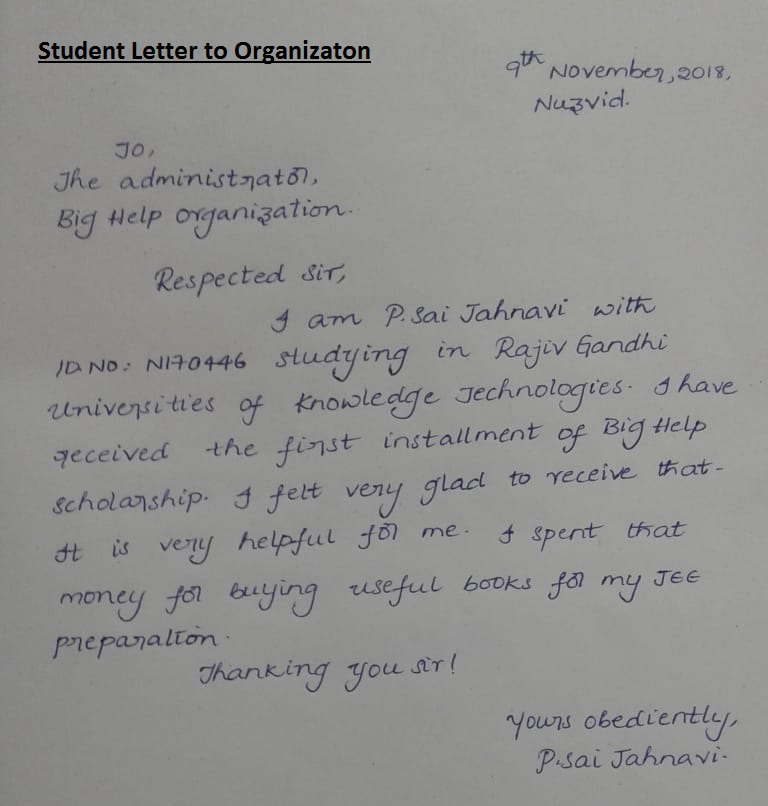 Student Letter to Organizaton
9th November, 2018,
Nuzvid.
To,
The administrator,
Big Help organization.
Respected Sir,
I am P. Sai Jahnavi with
ID.NO: N170446 studying in Rajiv Gandhi
Universities of Knowledge Technologies. I have
received the first installment of Big Help
scholarship. I felt very glad to receive that.
It is very helpful for me. I spent that
money for buying useful books for my JEE
preparation.
Thanking you sir!
Yours obediently,
P.Sai Jahnavi.